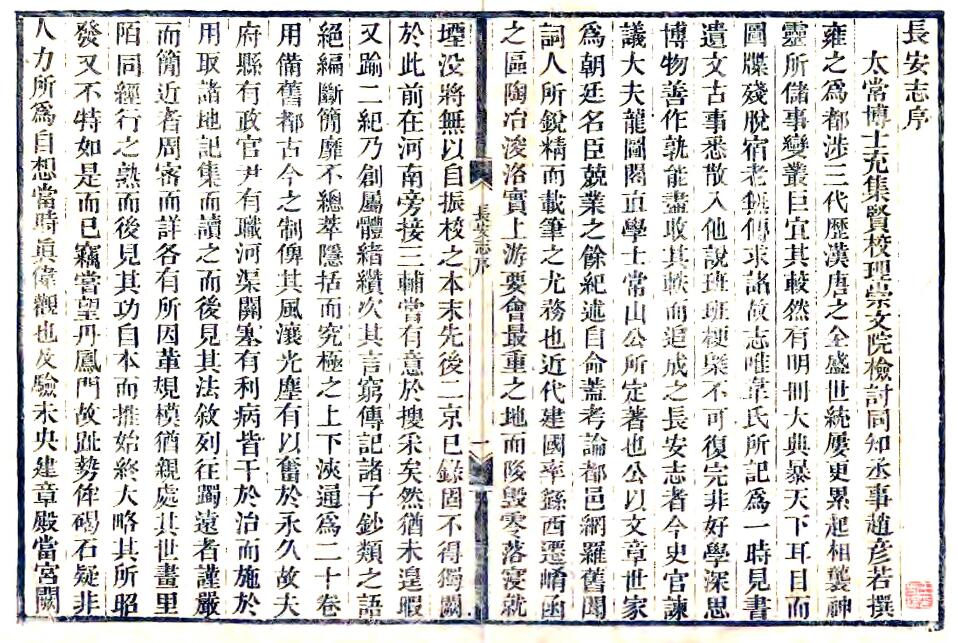 長安志序
太常博士充集賢校理崇文院檢討同知丞事趙彥若撰
雍之爲都涉三代歷漢唐之全盛世統屢更累起相襲神
靈所儲事變叢巨宜其較然有明冊大典暴天下耳目而
圖牒殘脫宿老無傳求諸故志唯韋氏所記爲一時見書
遺文古事悉散入他說班班梗槩不可復完非好學深思
博物善作孰能盡收其軼而追成之長安志者今史官諫
議大夫龍圖閣直學士常山公所定著也公以文章世家
爲朝廷名臣兢業之餘紀述自命蓋考論都邑網羅舊聞
詞人所銳精而載筆之尤務也近代建國率繇西遷崤函
之區陶冶浚洛實上游要會最重之地而陵毀零落寖就
長安志序
一
堙没將無以自振校之本末先後二京已錄固不得獨闕
於此前在河南旁接三輔嘗有意於搜采矣然猶未遑暇
又踰二紀乃創屬體緒纘次其言窮傳記諸子鈔類之語
絕編斷簡靡不總萃隱括而究極之上下浹通爲二十卷
用備舊都古今之制俾其風瀼光塵有以奮於永久故夫
府縣有政官尹有職河渠關塞有利病皆干於治而施於
用取諸地記集而讀之而後見其法敘列往躅遠者謹嚴
而簡近者周密而詳各有所因革規模猶親處其世畫里
陌同經行之熟而後見其功自本而推始終大略其所昭
發又不特如是而已竊嘗望丹鳳門故趾勢侔碣石疑非
人力所爲自想當時眞偉觀也及驗未央建章嚴當宮闕